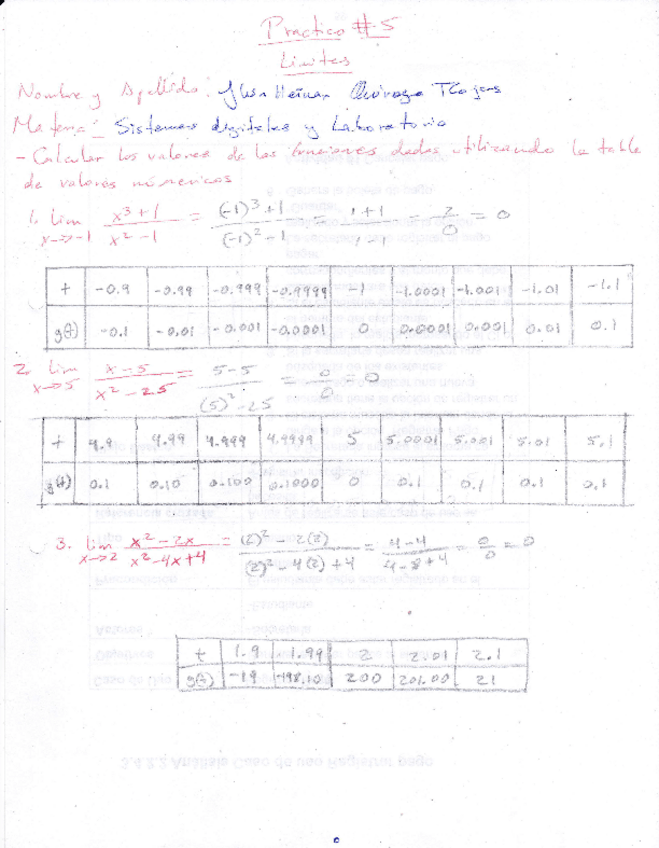 Practico #5
Limites
Nombre y Apellido:
Materia: Sistemas digitales y Laboratorio
- Calcular los valores de las funciones dadas utilizando la tabla
de valores númericos
1. lim x→-1 x³+1 / x²-1 = (-1)³+1 / (-1)²-1 = 1+1 = 2/0 = 0
t -0.9 -0.99 -0.999 -0.9999 -1 -1.0001 -1.001 -1.01 -1.1
g(t) -0.1 -0.01 -0.001 -0.0001 0 0.0001 0.001 0.01 0.1
2. lim x→5 x-5 / x²-25 = 5-5 / (5)²-25 = 0/0 = 0
t 4.9 4.99 4.999 4.9999 5 5.0001 5.001 5.01 5.1
g(t) 0.1 0.10 0.100 0.1000 0 0.1 0.1 0.1 0.1
3. lim x→2 x²-2x / x²-4x+4 = (2)²-2(2) / (2)²-4(2)+4 = 4-4 / 4-8+4 = 0/0 = 0
t 1.9 1.99 2 2.01 2.1
g(t) -19 -198.10 200 201.00 21